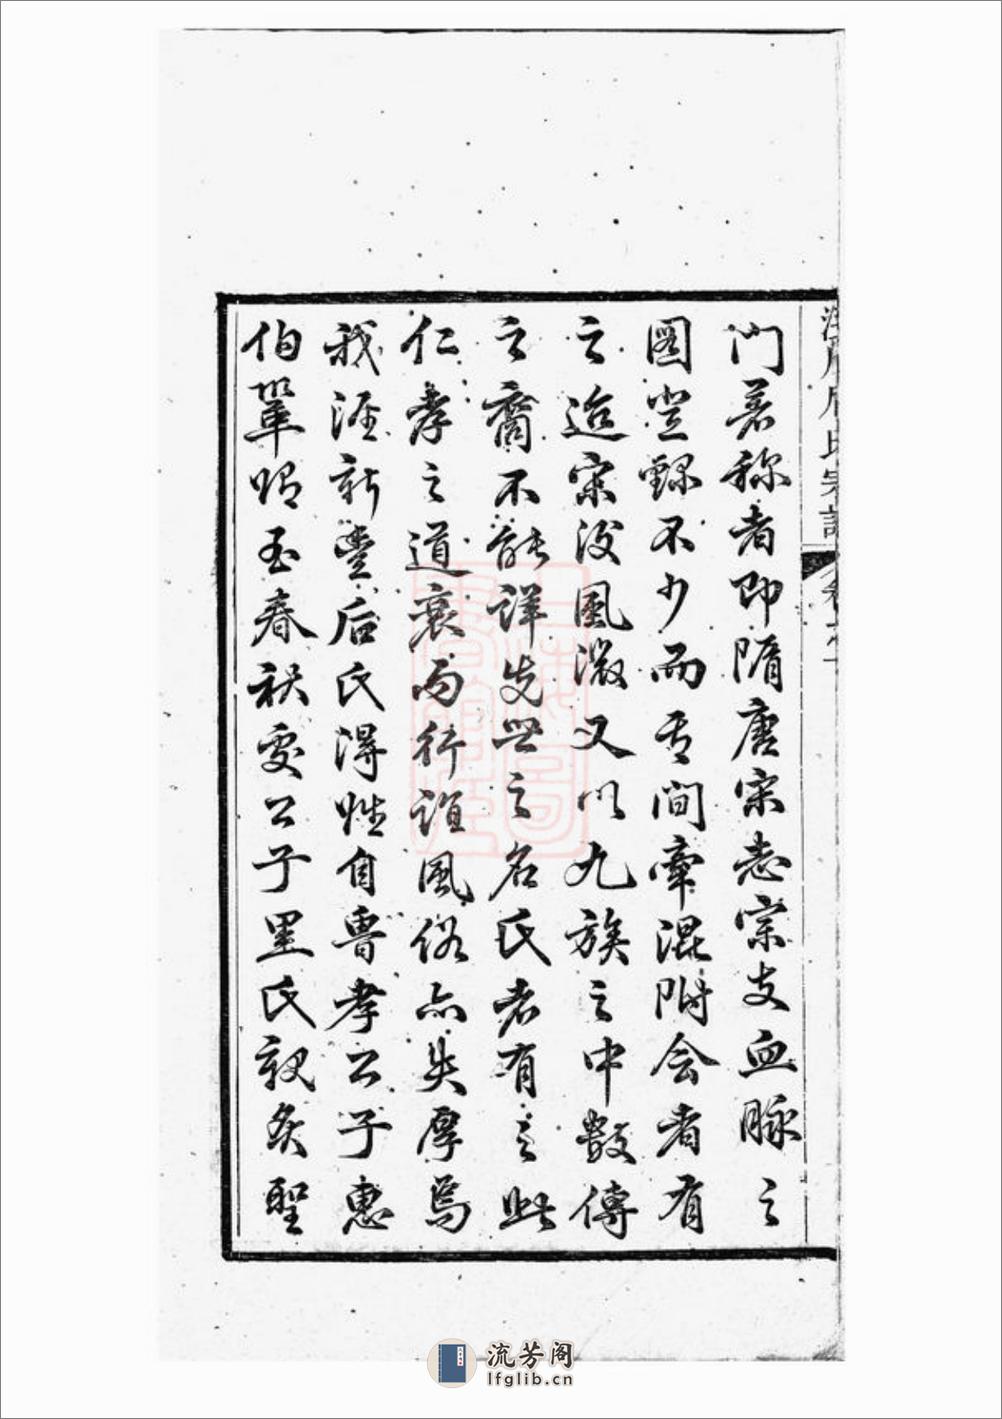 門著称者即隋唐宋志宗支血脉之
图登録不少而其間牽混附会者有
之迨宋没風微又以九族之中数傳
之裔不能詳先世之名氏者有之此
仁孝之道衰而行誼風俗亦失厚焉
我涇新豐后氏得姓自魯孝公子惠
伯鞏明至春秋更公子里氏親炙聖
后氏宗譜
流芳阁
lfglib.cn